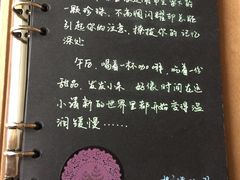 一颗珍珠，不需闪耀却总能
引起你的注意，撩拨你的记忆
深处
午后，喝着一杯咖啡，吃着一份
甜品，发发小呆 好像时间在这
小清新的世界里都开始变得温
润缓慢……